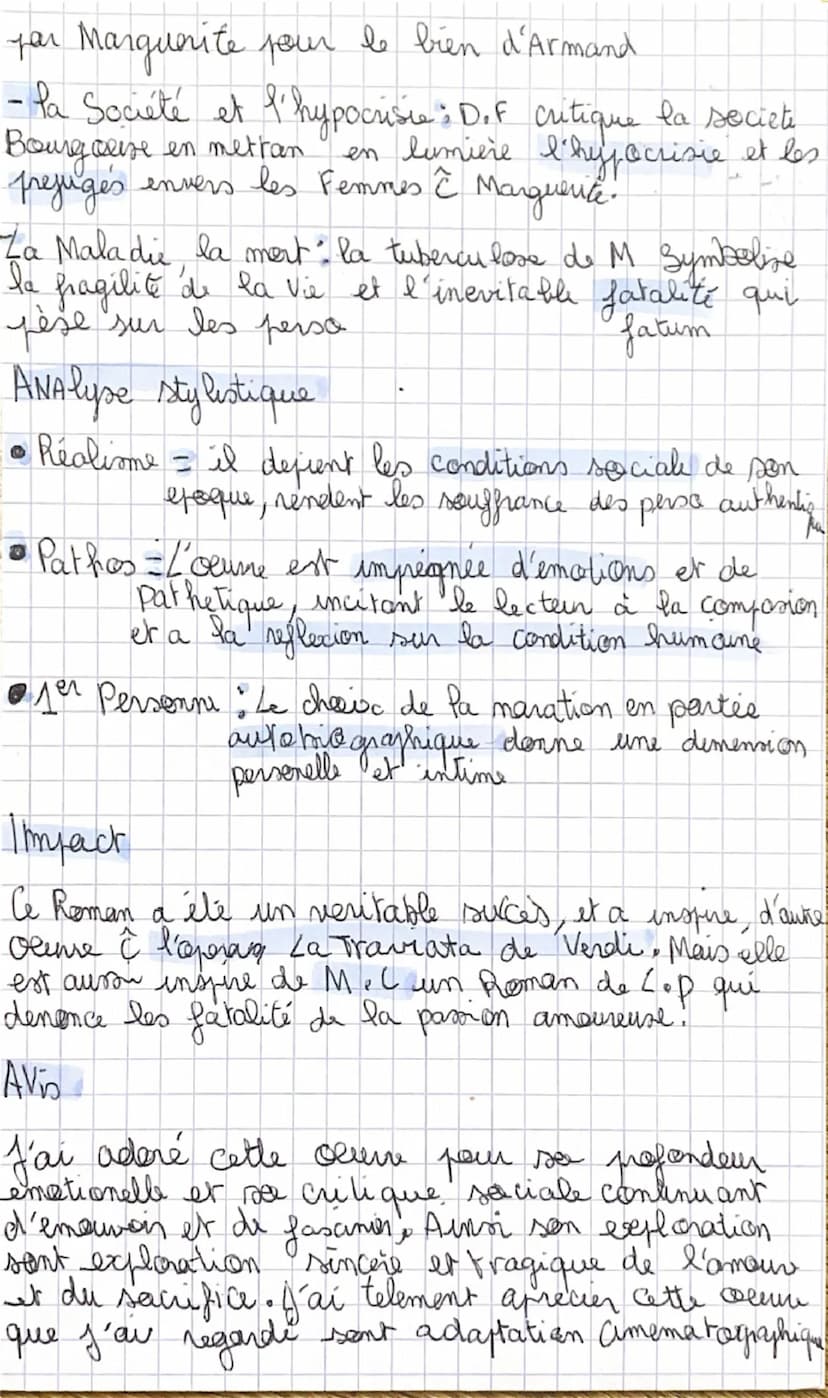 par Marguerite pour le bien d'Armand
- la Société et l'hypocrisie : D.F critique la societe
Bourgoeise en mettan en lumière l'hypocrisie et les
prejugés envers les Femmes Ĉ Marguerite.
La Maladie, la mort : la tuberculose de M Symbolise
la fragilité de la vie et l'inevitable fatalité qui
pèse sur les perso fatum
ANAlyse stylistique
• Réalisme = il depient les conditions sociale de son
epoque, rendent les souffrance des perso authentique
• Pathos = L'oeuvre est impregnée d'emotions et de
pathetique, incitant le lecteur à la compasion
et a la reflexion sur la condition humaine
• 1er Personne : Le choix de la naration en partie
autobiographique donne une dimension
personelle et intime
Impact
Ce Roman a été un veritable succès, et a inspire, d'autre
oeuvre Ĉ l'opera La Traviata de Verdi. Mais elle
est aussi inspire de M.L un Roman de L.P qui
denonce les fatalité de la passion amoureuse.
AVis
J'ai adoré cette oeuvre pour sa profondeur
emotionelle et sa critique sociale continuant
d'emouvoir et de fasciner, Ainsi son exploration
sont exploration sincère et tragique de l'amour
et du sacrifice. J'ai telement aprecier cette oeuvre
que j'ai regardé sont adaptation cinematographique